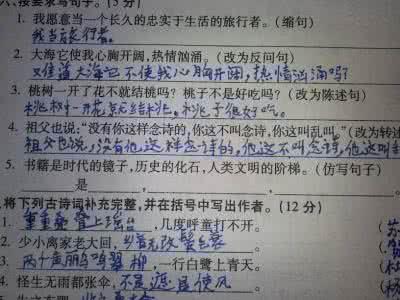 六、按要求写句子。(5分)
1. 我愿意当一个长久的忠实于生活的旅行者。(缩句)
我当旅行者。
2. 大海它使我心胸开阔,热情汹涌。(改为反问句)
难道大海它不使我心胸开阔,热情汹涌吗?
3. 桃树一开了花不就结桃吗?桃子不是好吃吗?(改为陈述句)
桃树一开花就结桃,桃子很好吃。
4. 祖父也说:“没有你这样念诗的,你这不叫念诗,你这叫乱叫。”(改为转述
祖父也说,没有他这样念诗的,他这不叫念诗,他这叫
5. 书籍是时代的镜子,历史的化石,人类文明的阶梯。(仿写句子)
是 , , 。
将下列古诗词补充完整,并在括号中写出作者。(12分)
1. 重重叠叠上瑶台,几度呼童打不开。
2. 少小离家老大回,乡音无改鬓毛衰。
3. 两个黄鹂鸣翠柳,一行白鹭上青天。
4. 怪生无雨都张伞,不是遮